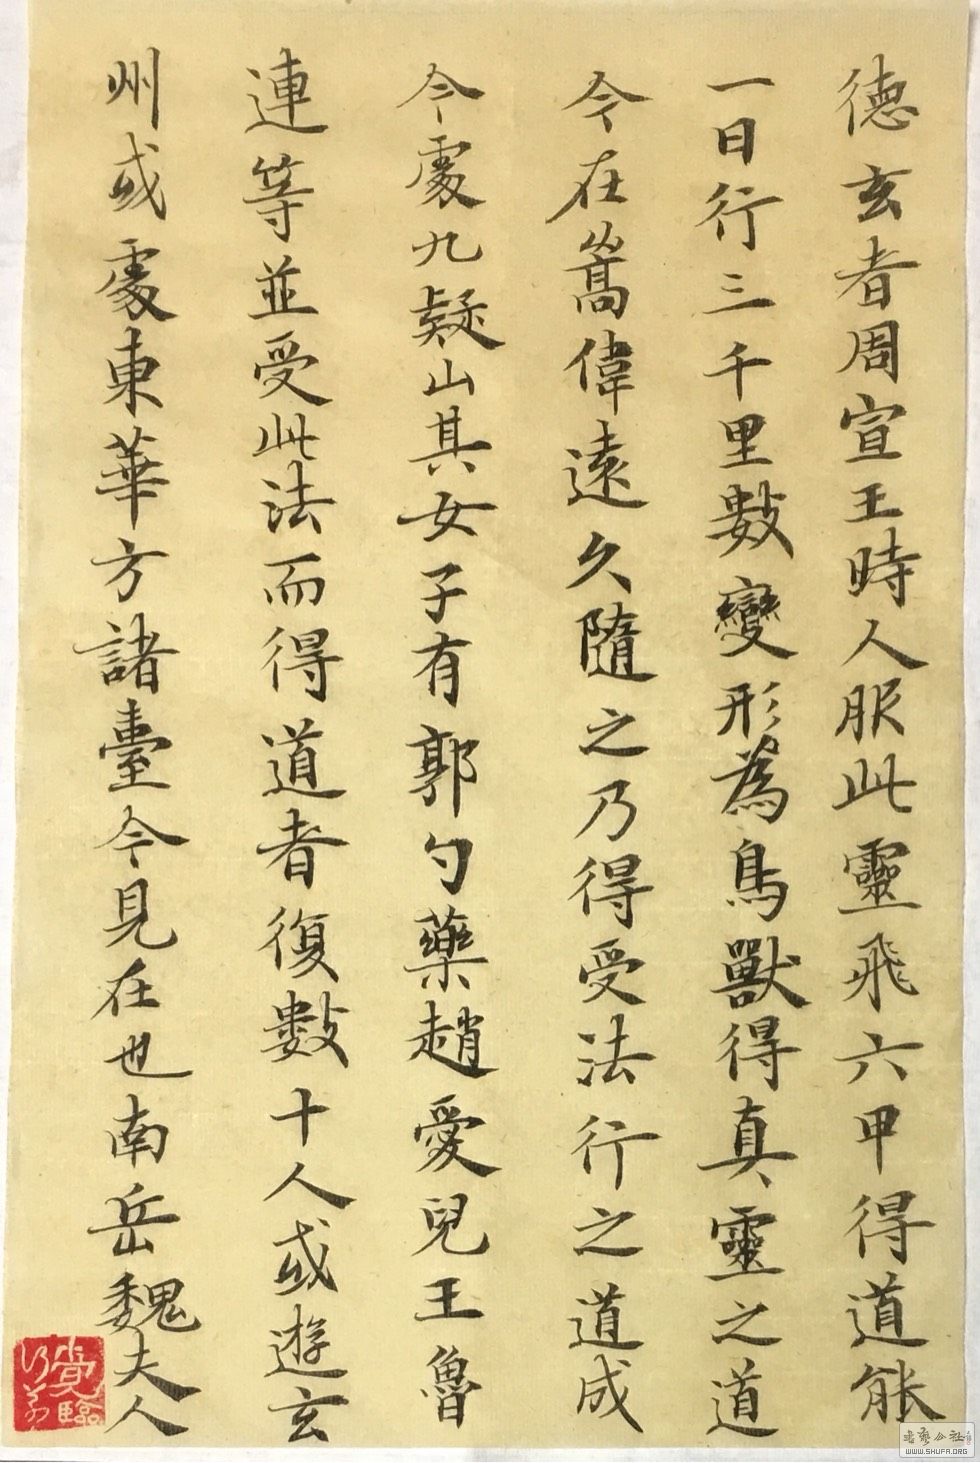 德玄者周宣王時人服此靈飛六甲得道能
一日行三千里數變形為鳥獸得真靈之道
今在嵩偉遠久隨之乃得受法行之道成
今處九疑山其女子有郭勺藥趙愛兒王魯
連等並受此法而得道者復數十人或遊玄
州或處東華方諸臺今見在也南岳魏夫人
WWW.SHUFA.ORG